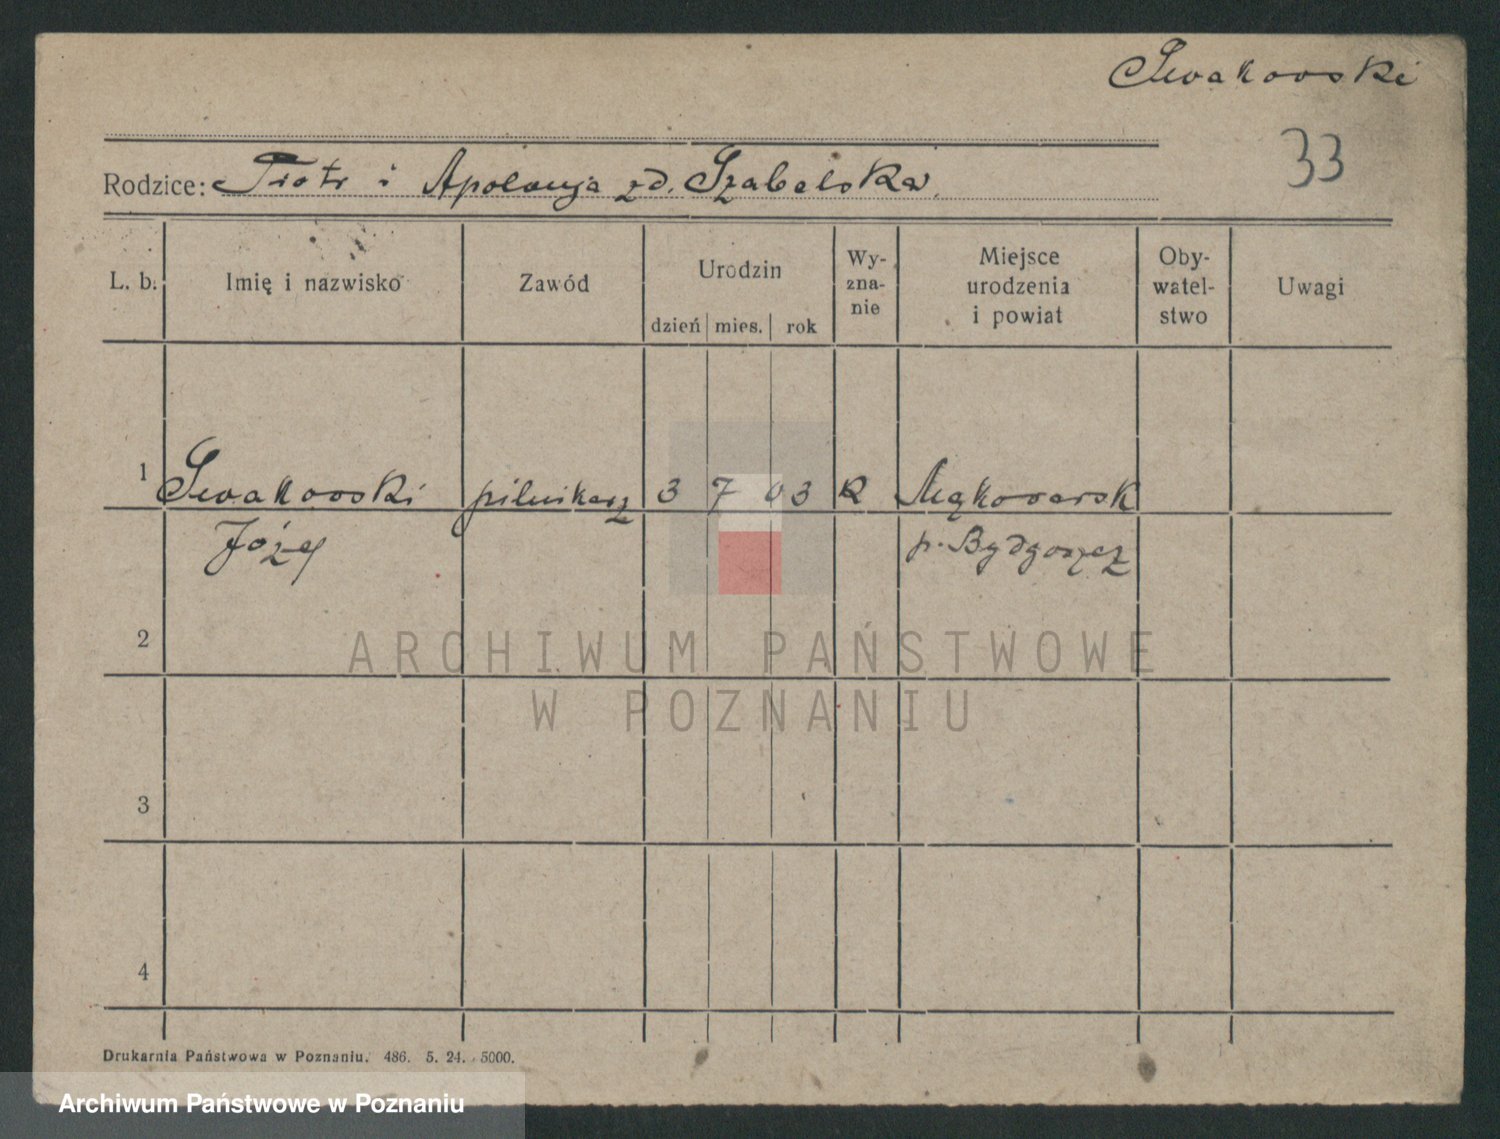 Swakowski
33
Rodzice: Piotr i Apolonja zd. Szabelska
L. b. Imię i nazwisko Zawód Urodzin dzień mies. rok Wy-zna-nie Miejsce urodzenia i powiat Oby-watel-stwo Uwagi
1 Swakowski pilnikarz 3 7 03 R Mąkowarsk
Józef p. Bydgoszcz
2
3
4
ARCHIWUM PAŃSTWOWE
W POZNANIU
Drukarnia Państwowa w Poznaniu. 486. 5. 24. 5000.
Archiwum Państwowe w Poznaniu